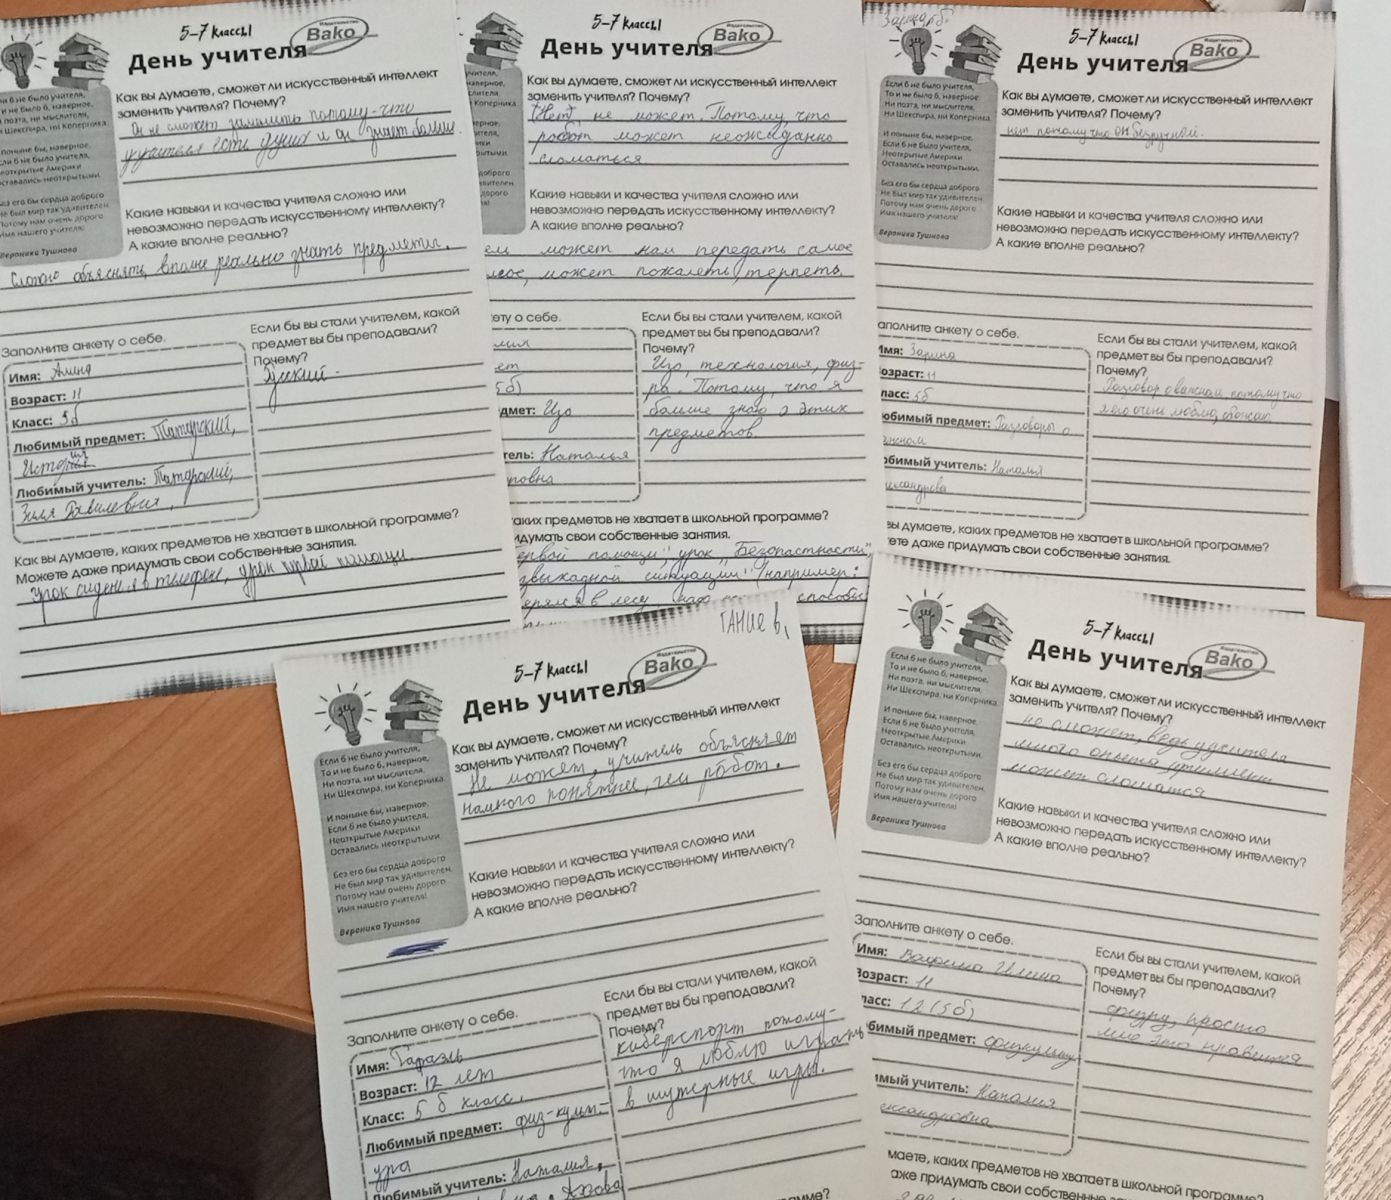 5–7 классы
Издательство
Bako
День учителя
Если б не было учителя,
То и не было б, наверное,
Ни поэта, ни мыслителя,
Ни Шекспира, ни Коперника.
И поныне бы, наверное,
Если б не было учителя,
Неоткрытые Америки
Оставались неоткрытыми.
Без его бы сердца доброго
Не был мир так удивителен.
Потому нам очень дорого
Имя нашего учителя!
Вероника Тушнова
Как вы думаете, сможет ли искусственный интеллект
заменить учителя? Почему?
Он не сможет заменить потому-что
у учителя есть душа и он знает больше.
Какие навыки и качества учителя сложно или
невозможно передать искусственному интеллекту?
А какие вполне реально?
Сложно объяснять, вполне реально знать предметы.
Заполните анкету о себе.
Имя: Амина
Возраст: 11
Класс: 5б
Любимый предмет: Татарский,
История
Любимый учитель: Татарский,
Если бы вы стали учителем, какой
предмет вы бы преподавали?
Почему?
Русский.
Как вы думаете, каких предметов не хватает в школьной программе?
Можете даже придумать свои собственные занятия.
урок сиденя в телефоне, урок первой помощи
5–7 классы
Издательство
Bako
День учителя
Как вы думаете, сможет ли искусственный интеллект
заменить учителя? Почему?
Нет, не может. Потому, что
робот может неожиданно
сломаться
Какие навыки и качества учителя сложно или
невозможно передать искусственному интеллекту?
А какие вполне реально?
может нам передать самое
может пожалеть, терпеть.
ету о себе.
лет
5б)
дмет: Изо
тель: Наталья
ровна
Если бы вы стали учителем, какой
предмет вы бы преподавали?
Почему?
Изо, технология, физ-
ра. Потому, что я
больше знаю о этих
предметов
аких предметов не хватает в школьной программе?
идумать свои собственные занятия.
ервой помощи", урок "Безопастности",
ситуации" (например:
ерялся в лесу способы
Зарина 5б
5–7 классы
Издательство
Bako
День учителя
Если б не было учителя,
То и не было б, наверное,
Ни поэта, ни мыслителя,
Ни Шекспира, ни Коперника.
И поныне бы, наверное,
Если б не было учителя,
Неоткрытые Америки
Оставались неоткрытыми.
Без его бы сердца доброго
Не был мир так удивителен.
Потому нам очень дорого
Имя нашего учителя!
Вероника Тушнова
Как вы думаете, сможет ли искусственный интеллект
заменить учителя? Почему?
нет потому что он бездушной.
Какие навыки и качества учителя сложно или
невозможно передать искусственному интеллекту?
А какие вполне реально?
аполните анкету о себе.
Имя: Зарина
озраст: 11
ласс: 5б
юбимый предмет: Разговоры о
важном
юбимый учитель: Наталия
Если бы вы стали учителем, какой
предмет вы бы преподавали?
Почему?
Разговор о важном, потому что
я его очень люблю, обожаю
вы думаете, каких предметов не хватает в школьной программе?
жете даже придумать свои собственные занятия.
5–7 классы
Издательство
Bako
День учителя
Если б не было учителя,
То и не было б, наверное,
Ни поэта, ни мыслителя,
Ни Шекспира, ни Коперника.
И поныне бы, наверное,
Если б не было учителя,
Неоткрытые Америки
Оставались неоткрытыми.
Без его бы сердца доброго
Не был мир так удивителен.
Потому нам очень дорого
Имя нашего учителя!
Вероника Тушнова
Как вы думаете, сможет ли искусственный интеллект
заменить учителя? Почему?
Не может, учитель объясняет
намного понятнее, чем робот.
Какие навыки и качества учителя сложно или
невозможно передать искусственному интеллекту?
А какие вполне реально?
Заполните анкету о себе.
Имя:
Возраст: 12 лет
Класс: 5 б класс.
Любимый предмет: физ-культ-
ура
Любимый учитель: Наталия,
Если бы вы стали учителем, какой
предмет вы бы преподавали?
Почему?
киберспорт потому-
что я люблю играть
в шутерные игры.
5–7 классы
Издательство
Bako
День учителя
Если б не было учителя,
То и не было б, наверное,
Ни поэта, ни мыслителя,
Ни Шекспира, ни Коперника.
И поныне бы, наверное,
Если б не было учителя,
Неоткрытые Америки
Оставались неоткрытыми.
Без его бы сердца доброго
Не был мир так удивителен.
Потому нам очень дорого
Имя нашего учителя!
Вероника Тушнова
Как вы думаете, сможет ли искусственный интеллект
заменить учителя? Почему?
не сможет, ведь у учителя
много опыта
может сломатся
Какие навыки и качества учителя сложно или
невозможно передать искусственному интеллекту?
А какие вполне реально?
Заполните анкету о себе.
Имя:
Возраст: 11
ласс: 12 (5б)
бимый предмет:
имый учитель: Наталия
ександровна
Если бы вы стали учителем, какой
предмет вы бы преподавали?
Почему?
физру, просто
мне это нравится
маете, каких предметов не хватает в школьной программе?
аже придумать свои собственные занятия.